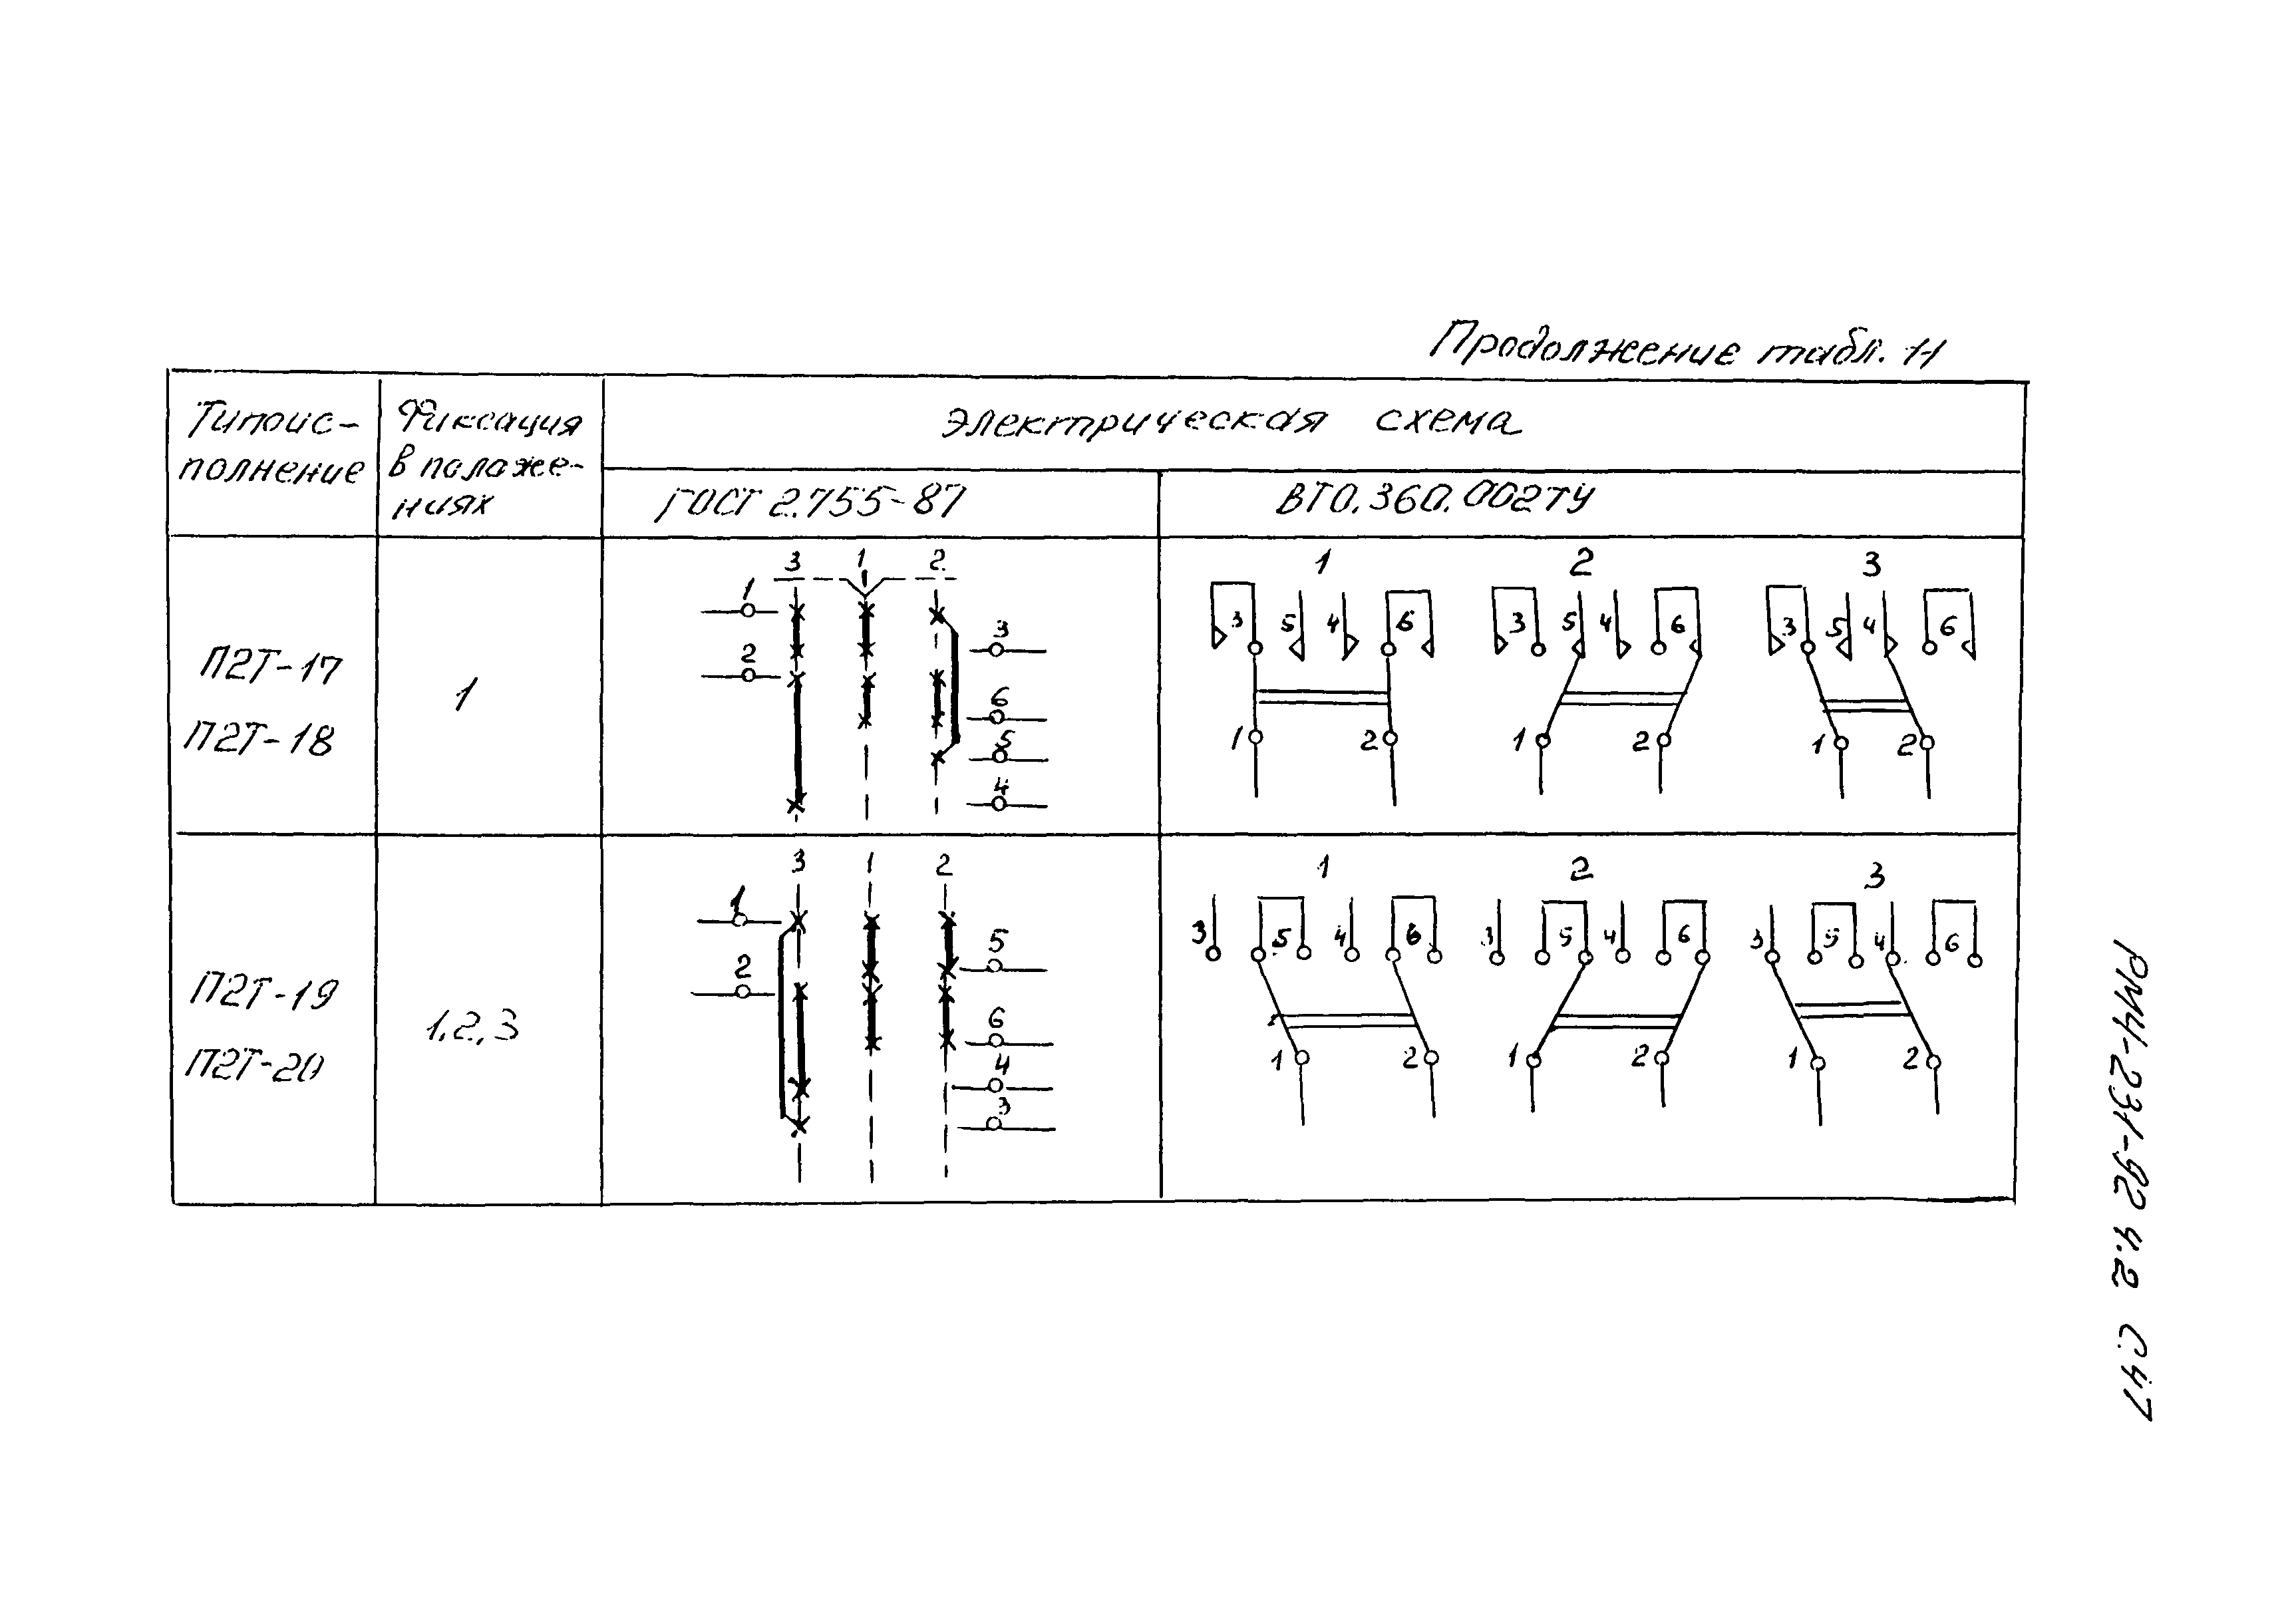 Продолжение табл. 11
Типоис-
полнение
Фиксация
в положе-
ниях
электрическая схема
ГОСТ 2.755-87
ВТО.360.002ТУ
П2Т-17
П2Т-18
1
3 1 2
1
2
3
6
5
4
1 2 3
3 5 4 6 3 5 4 6 3 5 4 6
1 2 1 2 1 2
П2Т-19
П2Т-20
1,2,3
3 1 2
1
2
5
6
4
3
1 2 3
3 5 4 6 3 5 4 6 3 5 4 6
1 2 1 2 1 2
РМ4-231-92 ч.2 С.47